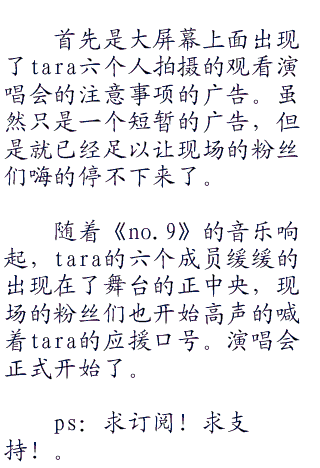 首先是大屏幕上面出现
了tara六个人拍摄的观看演
唱会的注意事项的广告。虽
然只是一个短暂的广告，但
是就已经足以让现场的粉丝
们嗨的停不下来了。
随着《no.9》的音乐响
起，tara的六个成员缓缓的
出现在了舞台的正中央，现
场的粉丝们也开始高声的喊
着tara的应援口号。演唱会
正式开始了。
ps：求订阅！求支
持！。